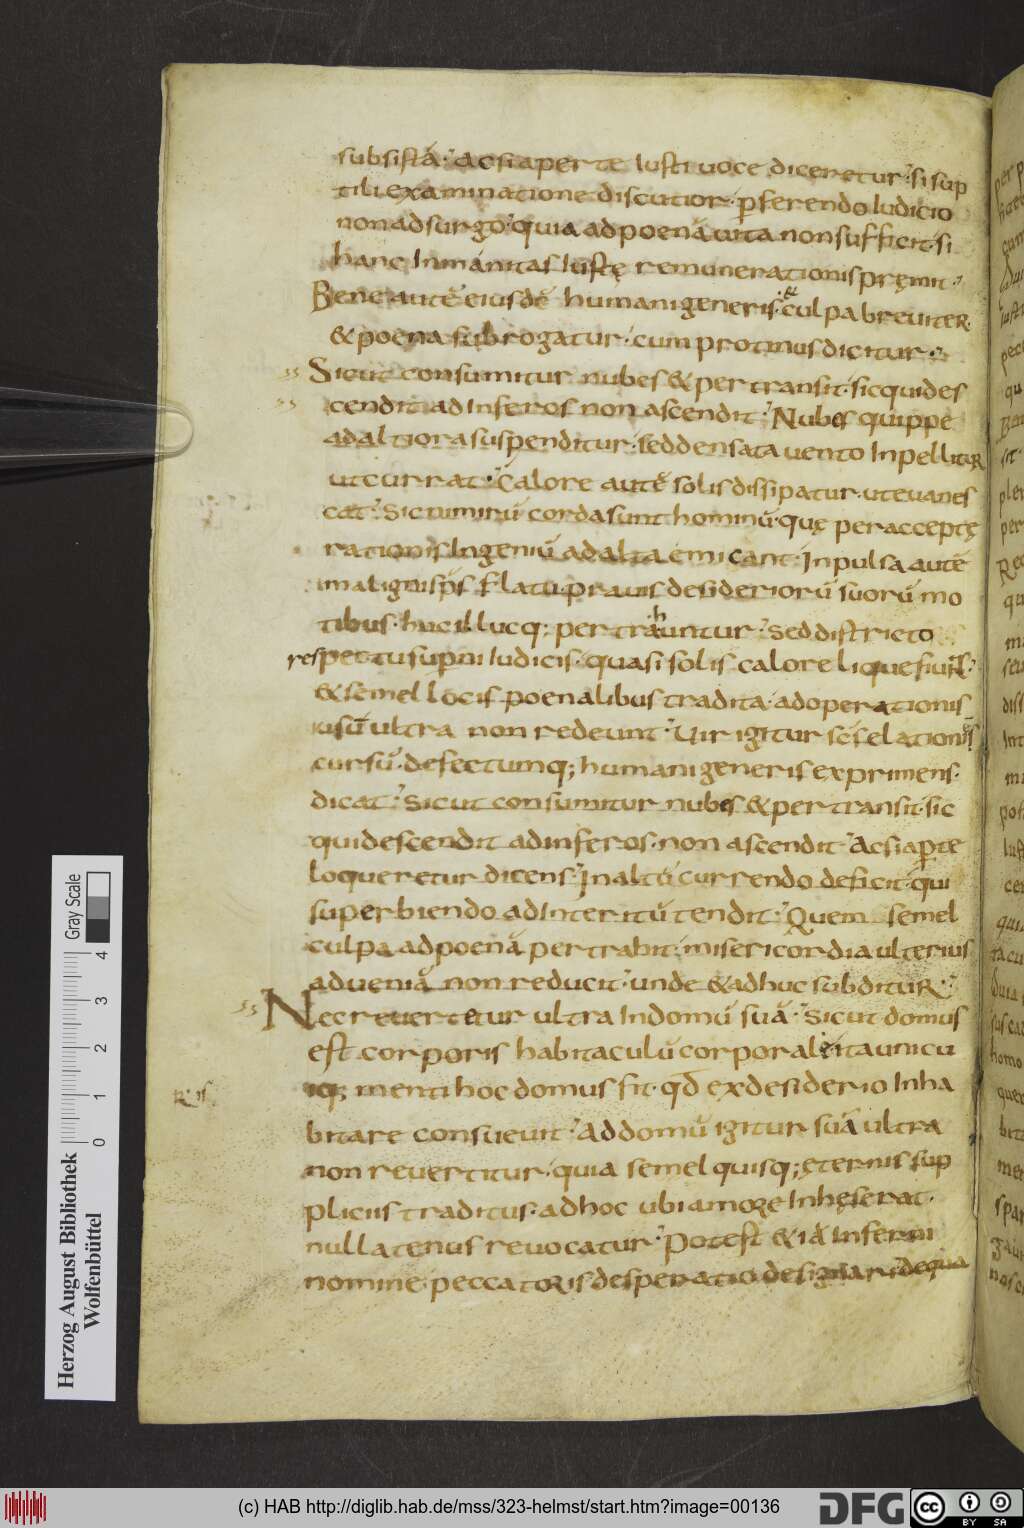 subsistā. Acsi aperte iusti uoce diceretur. si sup
tili examinatione discutior. pferendo iudicio
non adsurgo. quia ad poenā uita non sufficit. si
hanc inmanitas iustę remunerationis pręmit.
Bene autē eiusdē humani generis. & culpa breuiter
& poena subrogatur. cum protinus dicitur.
Sicut consumitur nubes & pertransit. sic qui des
cendit ad inferos non ascendit. Nubes quippe
ad altiora suspenditur. sed densata uento inpellitur
ut currat. Calore autē solis dissipatur. ut euanes
cat. Sic nimirū corda sunt hominū. quę per acceptę
rationis ingeniū ad alta emicant. Inpulsa autē
maligni sps flatu. prauis desideriorū suorū mo
tibus. huc illucq; pertrahuntur. Sed districto
respectu supni iudicis. quasi solis calore liquefiunt.
& semel locis poenalibus tradita. ad operationis
usū ultra non redeunt. Uir igitur scs elationis
cursū. defectumq; humani generis exprimens.
dicat. Sicut consumitur nubes & pertransit. sic
qui descendit ad inferos. non ascendit. Acsi apte
loqueretur dicens. In altū currendo deficit. qui
superbiendo ad interitū tendit. Quem semel
culpa ad poenā pertrahit. misericordia ulterius
ad ueniā non reducit. unde & adhuc subditur.
Nec reuertetur ultra in domū suā. Sicut domus
est corporis habitaculū corporale. ita unicu
iq; menti hoc domus fit. qđ ex desiderio inha
bitare consueuit. Ad domū igitur suā ultra
non reuertitur. quia semel quisq; ęternis sup
pliciis traditus. ad hoc ubi amore inhęserat.
nullatenus reuocatur. Potest & iā inferni
nomine peccatoris desperatio designari. de qua
Herzog August Bibliothek
Wolfenbüttel
0 1 2 3 4
Gray Scale
(c) HAB http://diglib.hab.de/mss/323-helmst/start.htm?image=00136
DFG
cc BY SA